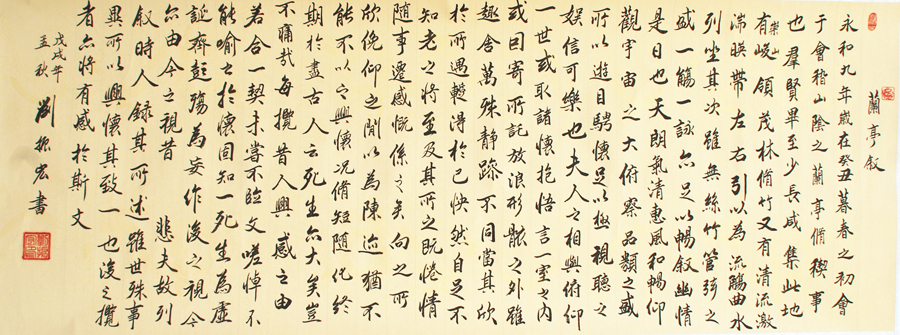 蘭亭叙
永和九年歲在癸丑暮春之初會
于會稽山陰之蘭亭脩稧事
也羣賢畢至少長咸集此地
有崇山峻領茂林脩竹又有清流激
湍暎帶左右引以為流觴曲水
列坐其次雖無絲竹管弦之
盛一觴一詠亦足以暢叙幽情
是日也天朗氣清惠風和暢仰
觀宇宙之大俯察品類之盛
所以遊目騁懷足以極視聽之
娛信可樂也夫人之相與俯仰
一世或取諸懷抱悟言一室之內
或因寄所託放浪形骸之外雖
趣舍萬殊靜躁不同當其欣
於所遇蹔得於己快然自足不
知老之將至及其所之既惓情
隨事遷感慨係之矣向之所
欣俛仰之閒以為陳迹猶不
能不以之興懷況脩短隨化終
期於盡古人云死生亦大矣豈
不痛哉每攬昔人興感之由
若合一契未嘗不臨文嗟悼不
能喻之於懷固知一死生為虛
誕齊彭殤為妄作後之視今
亦由今之視昔 悲夫故列
叙時人錄其所述雖世殊事
異所以興懷其致一也後之攬
者亦將有感於斯文
戊戌年
孟秋
劉振宏書